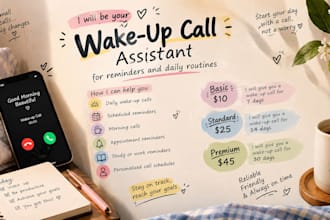 I will be your
Wake-Up Call
Assistant
for reminders and daily routines
How I can help you:
Daily wake-up calls
Scheduled reminders
Morning calls
Appointment reminders
Study or work reminders
Personalized call schedules
Basic:
$10
I will give you a
wake-up call for
7 days
Standard:
$25
I will give you a
wake-up call for
14 days
Premium
$45
I will give you a
wake-up call for
30 days
Start your day
with a call,
not a worry
Good Morning
Beautiful!
Wake-Up Call
Stay on track,
reach your goals.
Reliable
Friendly
& Always on time
small
big changes
wake up
be productive
Achieve your
goals